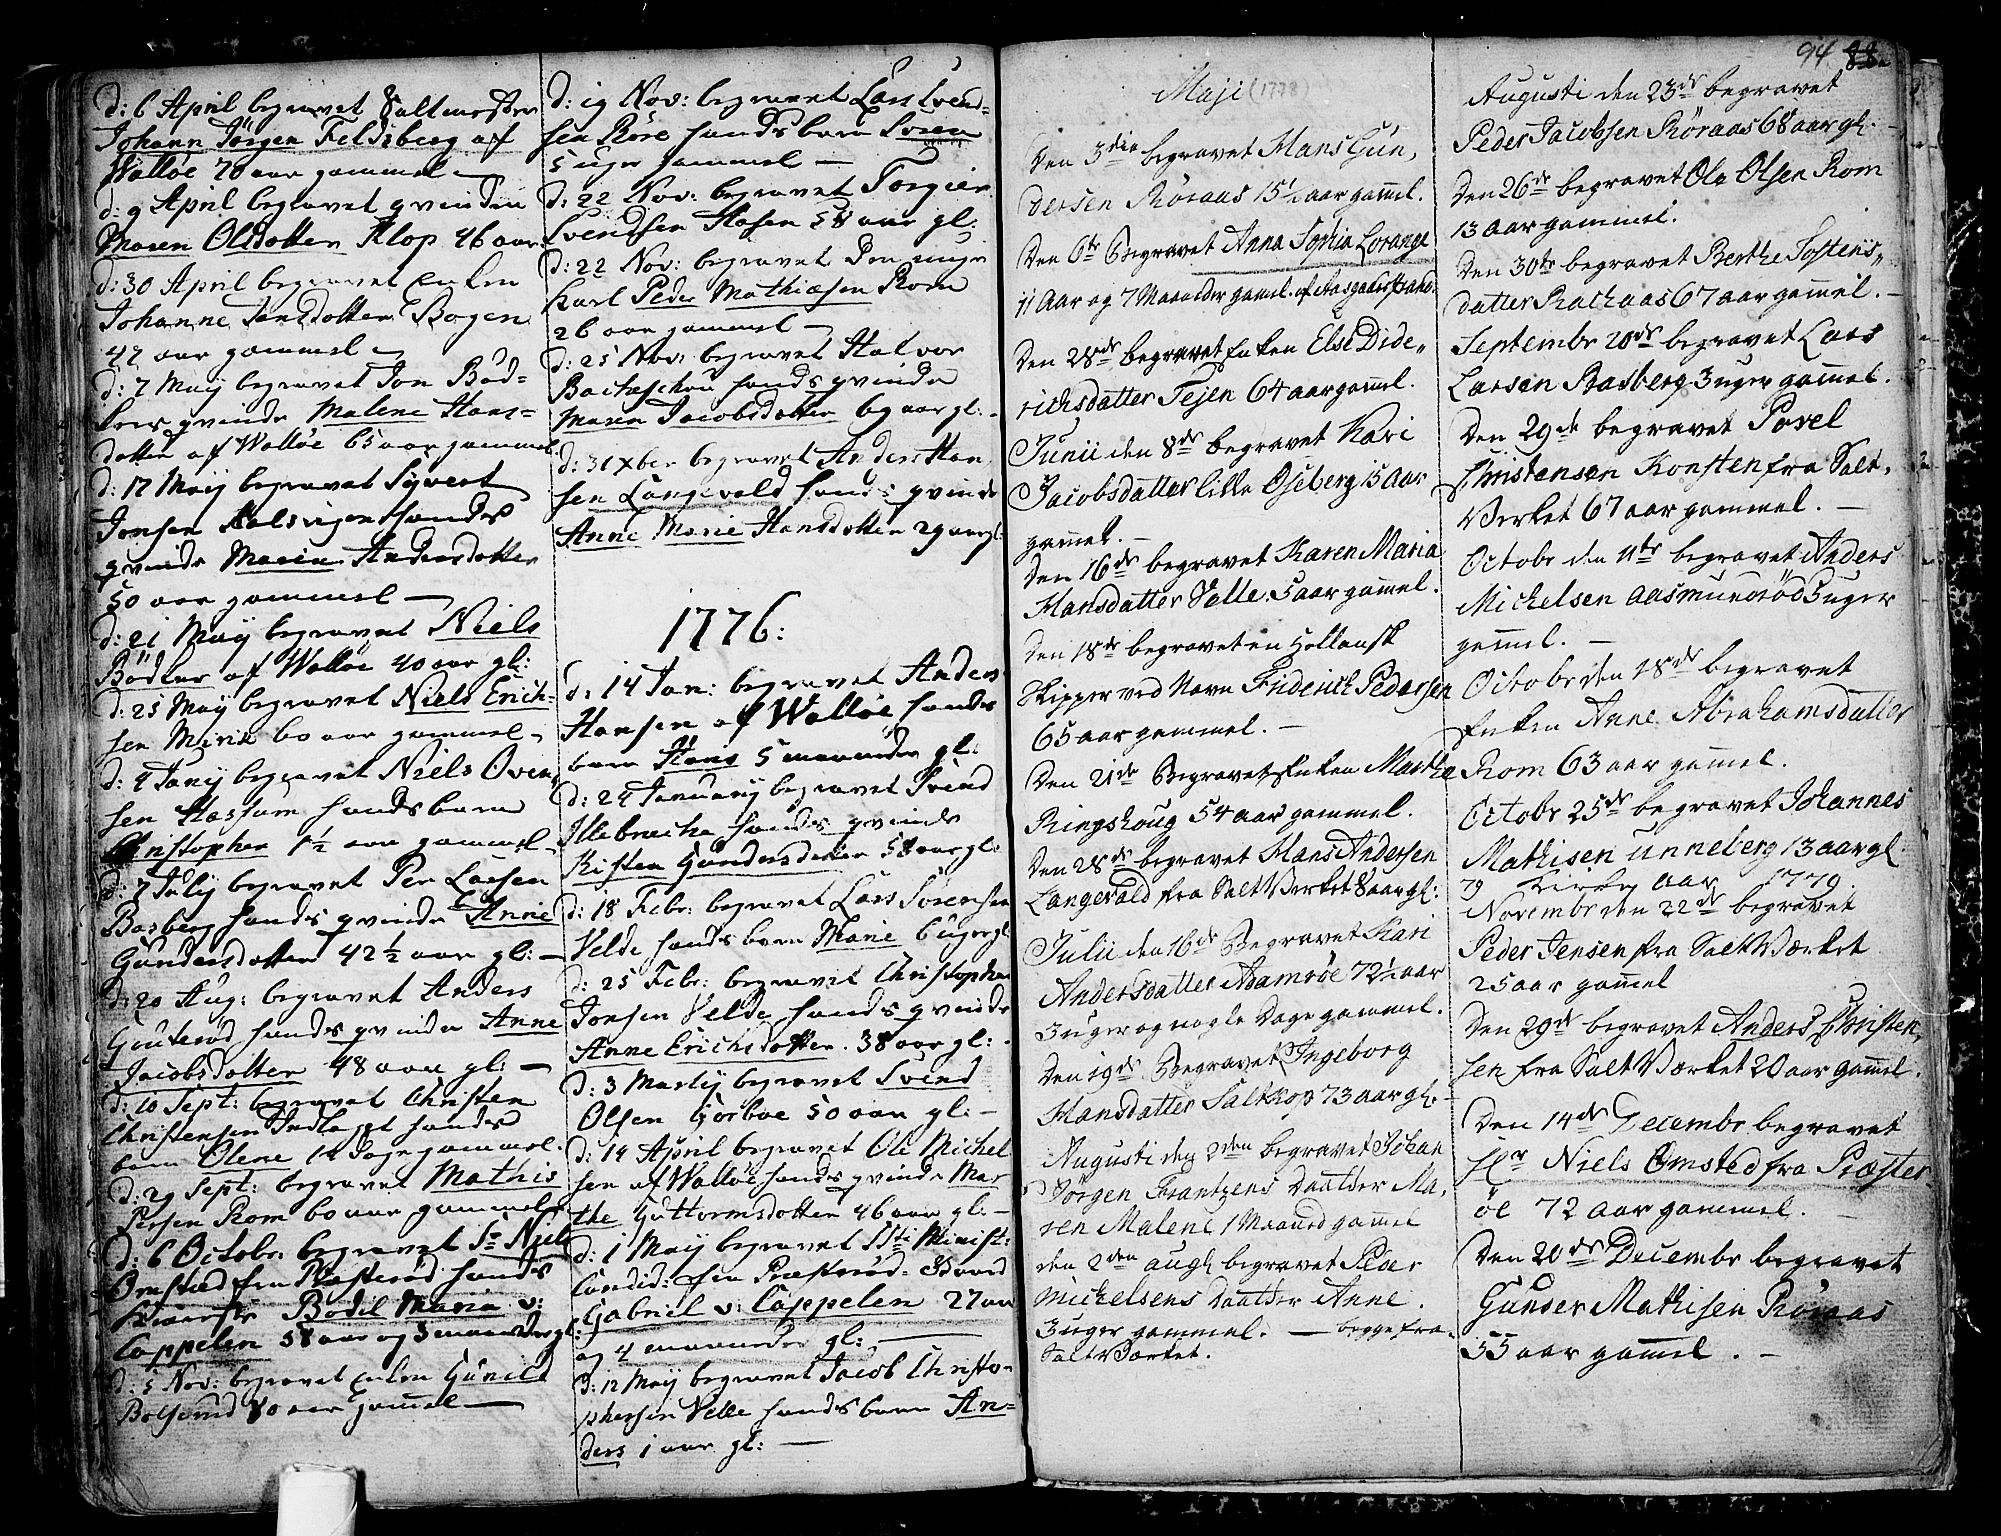 d: 6 April begravet Saltmester
Johann Jörgen Feldsberg af
Walløe 70 aar gammel
d: 9 April begravet qvinden
Maren Olsdotter Klop 46 aar
d: 30 April begravet enken
Johanne Jensdotter Bogen
42 aar gammel
d: 7 Maÿ begravet Jon Bød-
kers qvinde Malene Hans-
dotter af Walløe 65 aar gammel
d: 17 Maÿ begravet Syvert
Jonsen hands
qvinde Maria Andersdotter
50 aar gammel
d: 21 Maÿ begravet Niels
Bödker af Walløe 40 aar gl:
d: 25 Maÿ begravet Niels Erich-
sen Mirik 60 aar gammel
d: 4 begravet Niels Oven
sen Hassum hands barn
Christopher 1½ aar gammel
d: 7 Julÿ begravet Per Larsen
Basberg hands qvinde Anne
Gundersdotter 42½ aar gl:
d: 20 Aug: begravet Anders
Gouterød hands qvinde Anne
Jacobsdotter 48 aar gl:
d: 10 Sept: begravet Christen
Christensen hands
barn Olene 14 dage gammel
d: 29 Sept: begravet Mathis
Persen Rom 60 aar gammel
d: 6 Octobr: begravet Sr Niels
Ømsted fra Præsterød hands
Kiæreste Bodil Maria v:
Cappelen 58 aar og 3 maaneder gl:
d: 5 Nov: begravet enken Gunild
80 aar gam̄el
d: 19 Nov: begravet Lars Svend-
sen Röre hands barn Svren
5 uger gammel
d: 22 Nov: begravet Torgier
Svendsen Hasen 58 aar gl:
d: 22 Nov: begravet Den unge
karl Peder Mathiæsen Rom
26 aar gammel
d: 25 Nov: begravet Halvor
Bacheschou hands qvinde
Maren Jacobsdotter 69 aar gl:
d: 31 Xber begravet Anders Han
sen Langevald hands qvinde
Anne Marie Hansdotter 29 aar gl:
1776:
d: 14 Jan: begravet Anders
Hansen af Walløe hands
barn Hans 5 maaneder gl:
d: 24 Januarÿ begravet Svend
Illebreche hands qvinde
Kisten Gundersdotter 58 aar gl:
d: 18 Febr: begravet Lars Sørensen
Velde hands barn Marie 6 uger gl:
d: 25 Febr: begravet Christopher
Jonsen Velde hands qvinde
Anne Erichsdotter 38 aar gl:
d: 3 Martÿ begravet Svend
Olsen Gorboe 50 aar gl:
d: 14 April begravet Ole Michel
sen af Walløe hands qvinde Mar
the Guttormsdotter 46 aar gl:
d: 1 Maÿ begravet Ssti Minist:
Candid: fra Præsterød
Gabriel v: Cappelen 27 aar
og 4 maaneder gl:
d: 12 Maÿ begravet Jacob Christo-
phersen Velle hands barn An-
ders 1 aar gl:
94 88
Maji (1778)
Den 3die begravet Hans Gun,
dersen Røraas 15½ aar gam̄el.
Den 6te Begravet Anna Sophia Lorange
11 Aar og 7 Maaneder gam̄el. af Aasgaardstrand.
Den 28de begravet Enken Else Dide,,
richsdatter Tejen 64 aar gam̄el.
Junii den 8de begravet Kari
Jacobsdatter lille Oseberg 15 aar
gam̄el.
Den 16de begravet Karen Maria
Hansdatter Velle. 5 aar gam̄el.
Den 18de begravet en Hollansk
Skipper ved Navn Friderich Pedersen
65 aar gammel.
Den 21de Begravet Enken Marthe
Ringshoug 54 aar gammel.
Den 28de begravet Hans Andersen
Langevald fra Salt Verket 8 aar gl:
Julii den 16de Begravet Kari
Andersdatter Adamrøe 72½ aar
3 uger og nogle Dage gammel.
Den 19de Begravet Ingeborg
Hansdatter Saltkop 73 aar gl.
Augusti den 2den begravet Johan
Jørgen Frantzens Daatter Ma,
ren Malene 1 Maaned gam̄el
den 2den augti begravet Peder
Michelsens Daatter Anne.
3 uger gammel. — begge fra
Salt Værket.
Augusti den 23de begravet
Peder Jacobsen Røraas 68 aar gl.
Den 26de begravet Ole Olsen Rom
13 aar gammel.
Den 30te begravet Berthe Tostens,,
datter Rachaas 67 aar gam̄el.
Septembr 20de begravet Lars
Larsen Basberg 3 uger gam̄el.
Den 29de begravet Povel
Christensen Konsten fra Salt,
Verket 67 aar gammel.
Octobr den 11te begravet Anders
Michelsen Aasmundrød 3 uger
gam̄el.
Octobr den 18de begravet
Enken Anne Abrahamsdatter
Rom 63 aar gam̄el.
October 25de begravet Johannes
Mathisen unneberg 13 aar gl.
79 Kirke aar 1779.
Novembr den 22de begravet
Peder Jensen fra Salt Værket
25 aar gam̄el
Den 29de begravet Anders Christen,
sen fra Salt Værket 20 aar gam̄el.
Den 14de Decembr begravet
Hr Niels Ømsted fra Præster-
øe 72 aar gam̄el.
Den 20de Decembr begravet
Gunder Mathisen Røraas
55 aar gam̄el.